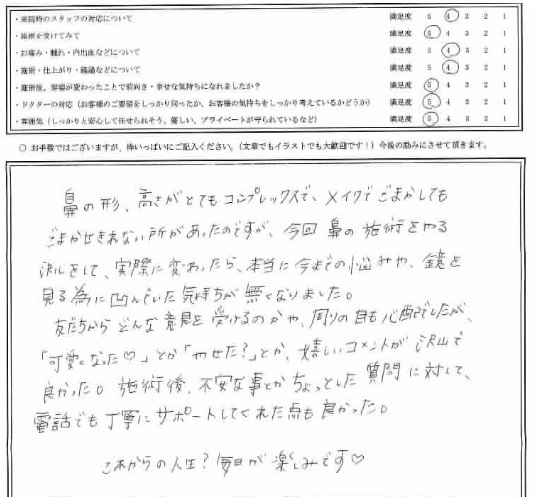 ・来院時のスタッフの対応について 満足度 5 4 3 2 1
・施術を受けてみて 満足度 5 4 3 2 1
・お痛み・腫れ・内出血などについて 満足度 5 4 3 2 1
・施術・仕上がり・経過などについて 満足度 5 4 3 2 1
・施術後、容姿が変わったことで前向き・幸せな気持ちになれましたか? 満足度 5 4 3 2 1
・ドクターの対応(お客様のご要望をしっかり伺ったか、お客様の気持ちをしっかり考えているかどうか) 満足度 5 4 3 2 1
・雰囲気(しっかりと安心して任せられそう、優しい、プライベートが守られているなど) 満足度 5 4 3 2 1
○ お手数ではございますが、枠いっぱいにご記入ください。(文章でもイラストでも大歓迎です!)今後の励みにさせて頂きます。
鼻の形、高さがとてもコンプレックスで、メイクでごまかしても
ごまかせきれない所があったのですが、今回 鼻の施術をやる
決心をして、実際に変わったら、本当に今までの悩みや、鏡を
見る為に凹んでいた気持ちが無くなりました。
友だちから どんな意見を受けるのかや、周りの目も心配でしたが、
「可愛くなった♡」とか「やせた?」とか、嬉しいコメントが沢山で
良かった。施術後、不安な事とかちょっとした質問に対して、
電話でも丁寧にサポートしてくれた点も良かった。
これからの人生?毎日が楽しみです♡